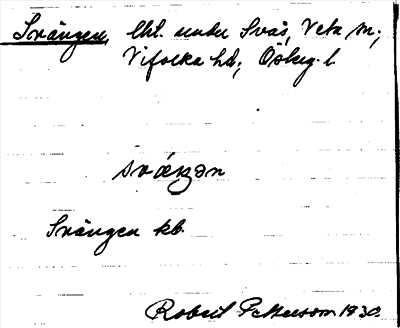 Svängen, lht. under Svas, Veta sn;
Vifolka hd; Östergl.
sväŋən
Svängen kb.
Robert Pettersson 1930